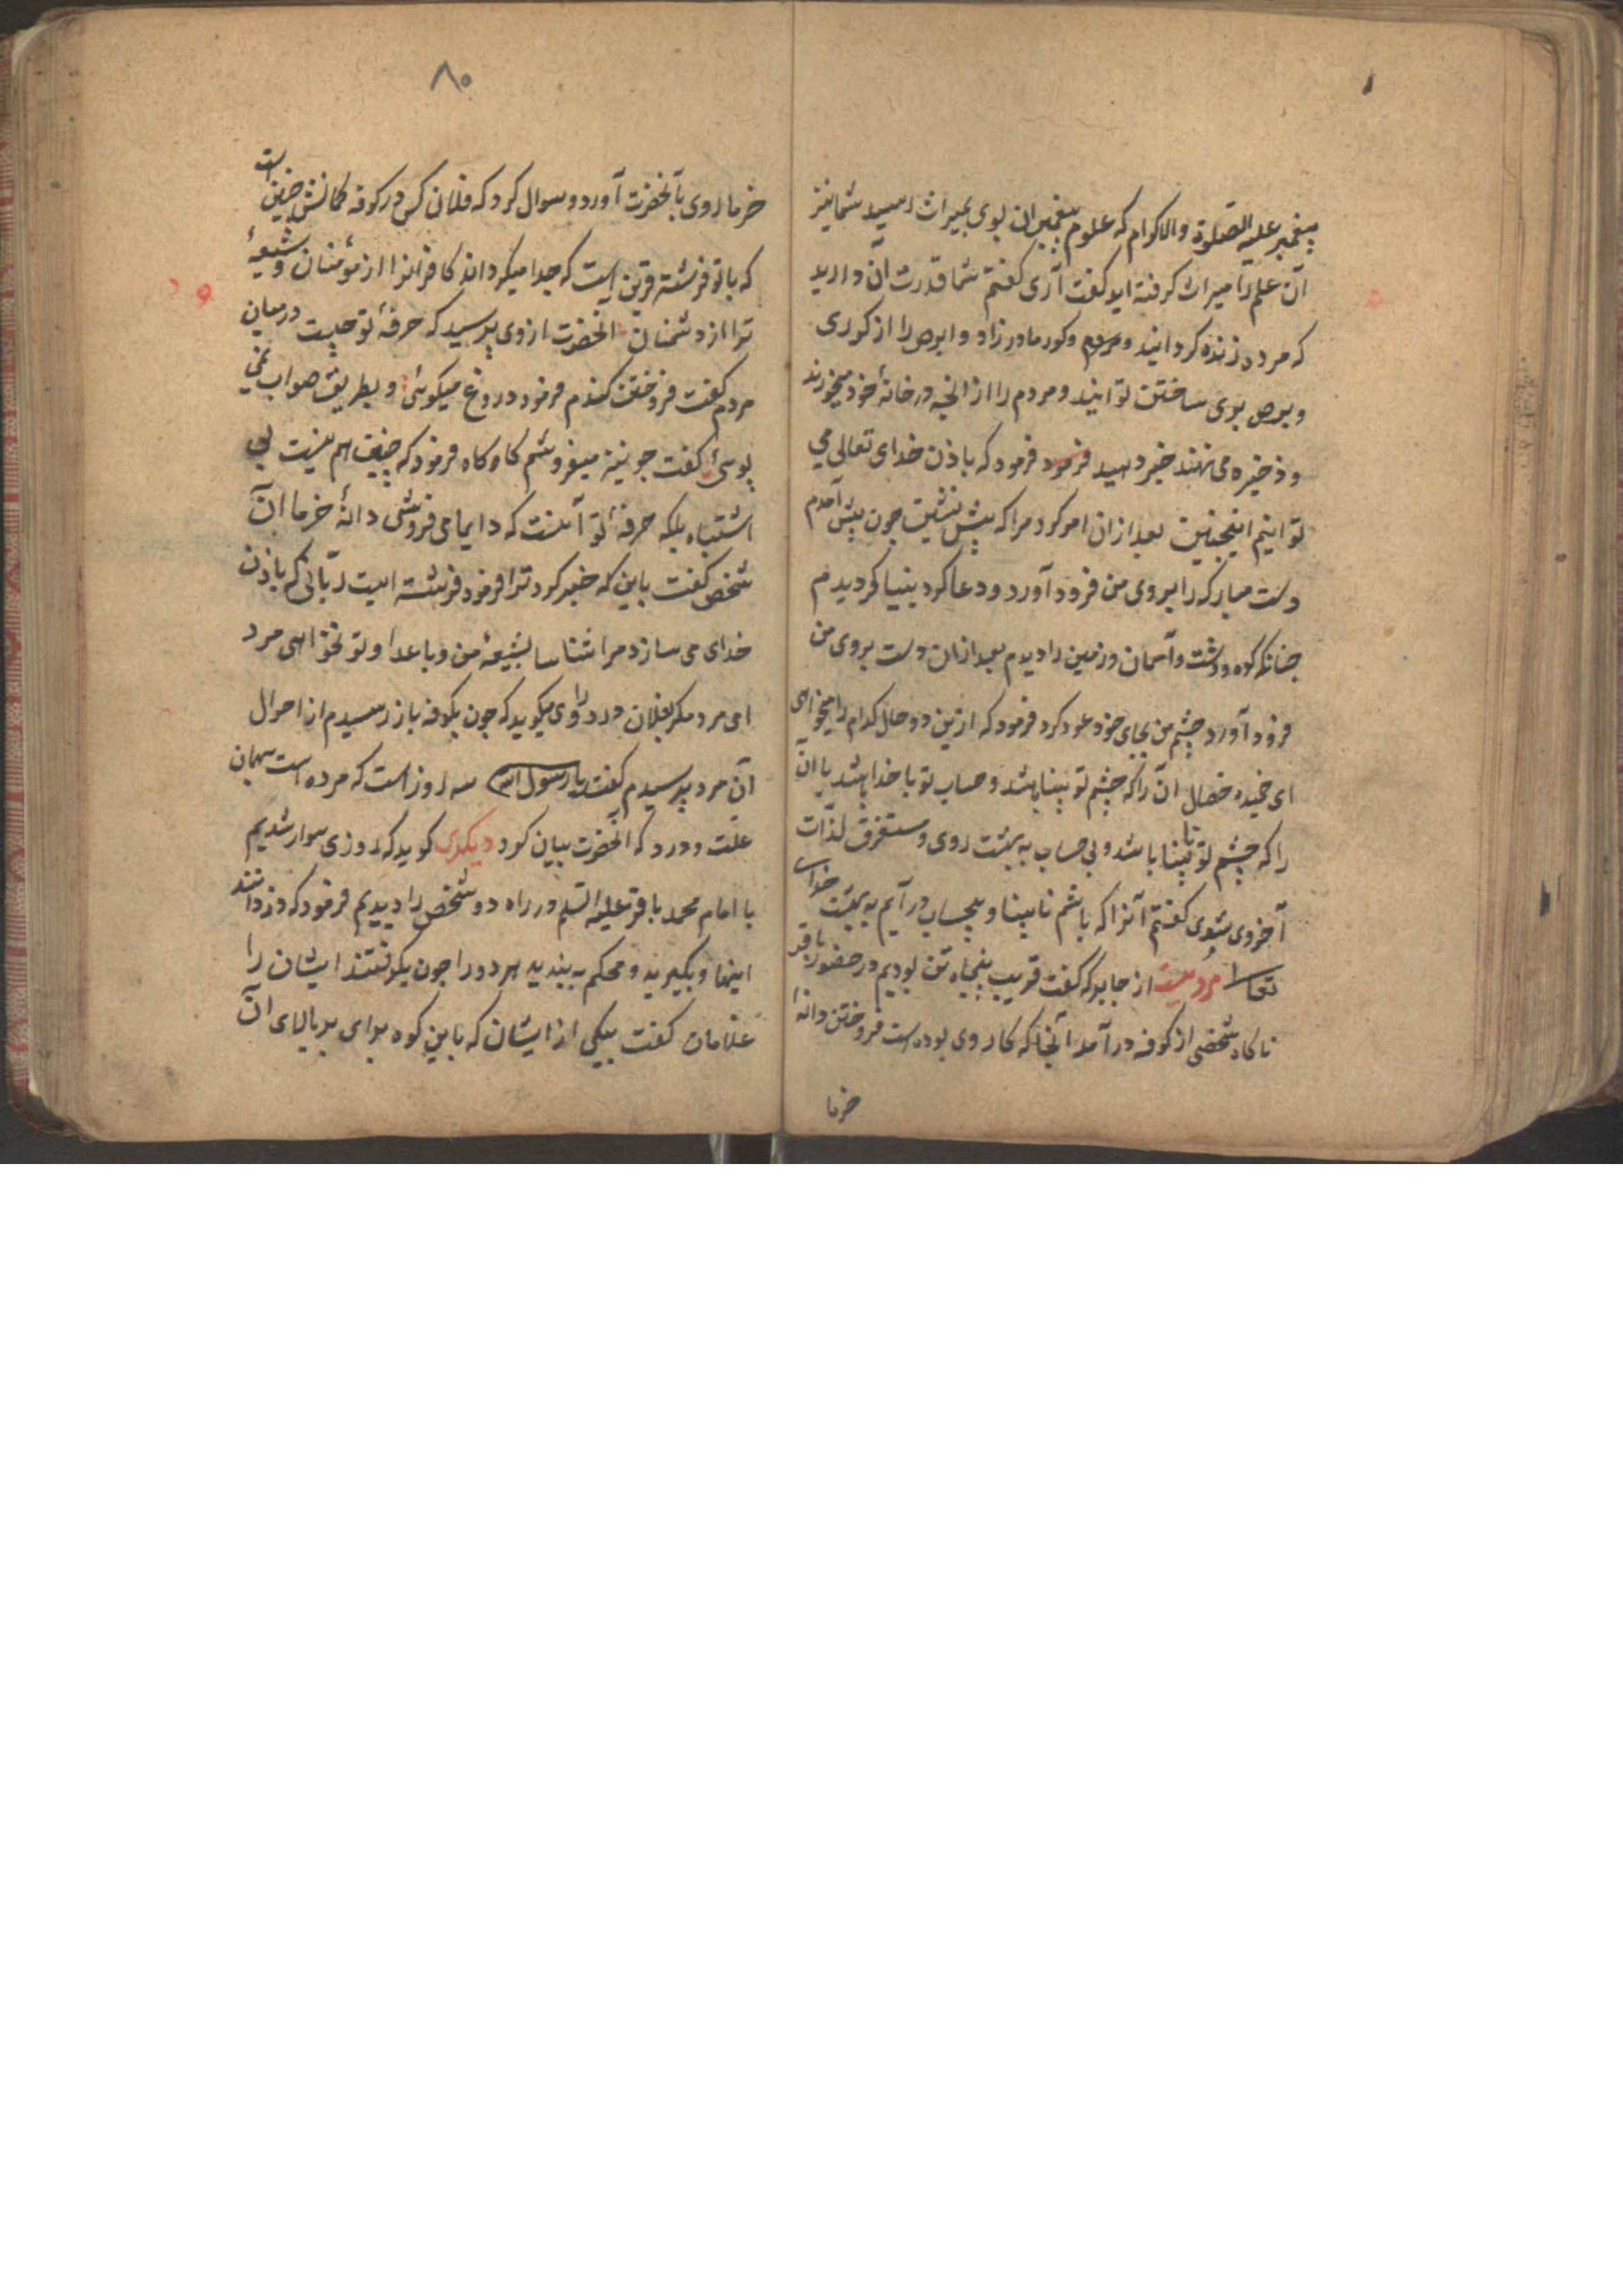 پیغمبر علیه الصلوة والاکرام که علوم پیغمبران بوی بمیراث رسید شما نیز
آن علم را میراث کرفته اید کفت آری کفتم شما قدرت آن دارید
که مرده زنده کردانید و مردم و کور مادر زاد و ابرص را از کوری
و برص بری ساختن توانید و مردم را از انچه در خانهٔ خود میخورند
و ذخیره می نهند خبر دهید فرمود فرمود که باذن خدای تعالی می
توانیم اینچنین بعد ازان امر کرد مرا که پیش نشین چون پیش آمدم
دست مبارکه را بروی من فرود آورد و دعا کرد بینا کردیدم
چنانکه کوه و دشت و آسمان و زمین را دیدم بعد ازان دست بروی من
فرود آورد چشم من بجای خود عود کرد فرمود که ازین دو حال کدام را میخواهی
ای حمیده خصال آن را که چشم تو بینا باشد و حساب تو با خدا باشد یا آن
را که چشم تو نابینا باشد و بی حساب به بهشت روی و مستغرق لذات
آخروی شوی کفتم آنرا که باشم نابینا و بیحساب در آیم به بهشت خدای
تعالی مرویست از جابر که کفت قریب پنجاه تن بودیم در حضور باقر
ناکاه شخصی از کوفه در آمد آنجا که کار وی بوده است فروختن دانهٔ
خرما
۸۰
خرما روی بآنحضرت آورد و سوال کرد که فلان کس در کوفه کمانش چنین است
که با تو فرشته قرین است که جدا میکرداند کافرانرا از مؤمنان و شیعهٔ
ترا از دشمنان آنحضرت از وی پرسید که حرفهٔ تو چیست در میان
مردم کفت فروختن کندم فرمود دروغ میکوئی و بطریق صواب نمی
پوئی کفت جو نیز میفروشم کاه کاه فرمود که چنین هم نیست بی
اشتباه بلکه حرفهٔ تو آنست که دایما می فروشی دانهٔ خرما آن
شخص کفت باین که خبر کرد ترا فرمود فرشته ایست ربانی که باذن
خدای می سازد مرا شناسا بشیعهٔ من و باعدا و تو نخواهی مرد
ای مرد مکر بفلان درد راوی میکوید که چون بکوفه باز رسیدم از احوال
آن مرد پرسیدم کفت یا رسول الله سه روز است که مرده است بهمان
علت و درد که آنحضرت بیان کرد دیکری کوید که روزی سوار شدیم
با امام محمد باقر علیه السلم در راه دو شخص را دیدیم فرمود که دزدانند
اینها و بکیرید و محکم به بندید هر دو را چون بکرفتند ایشان را
غلامان کفت بیکی از ایشان که باین کوه برای بر بالای آن